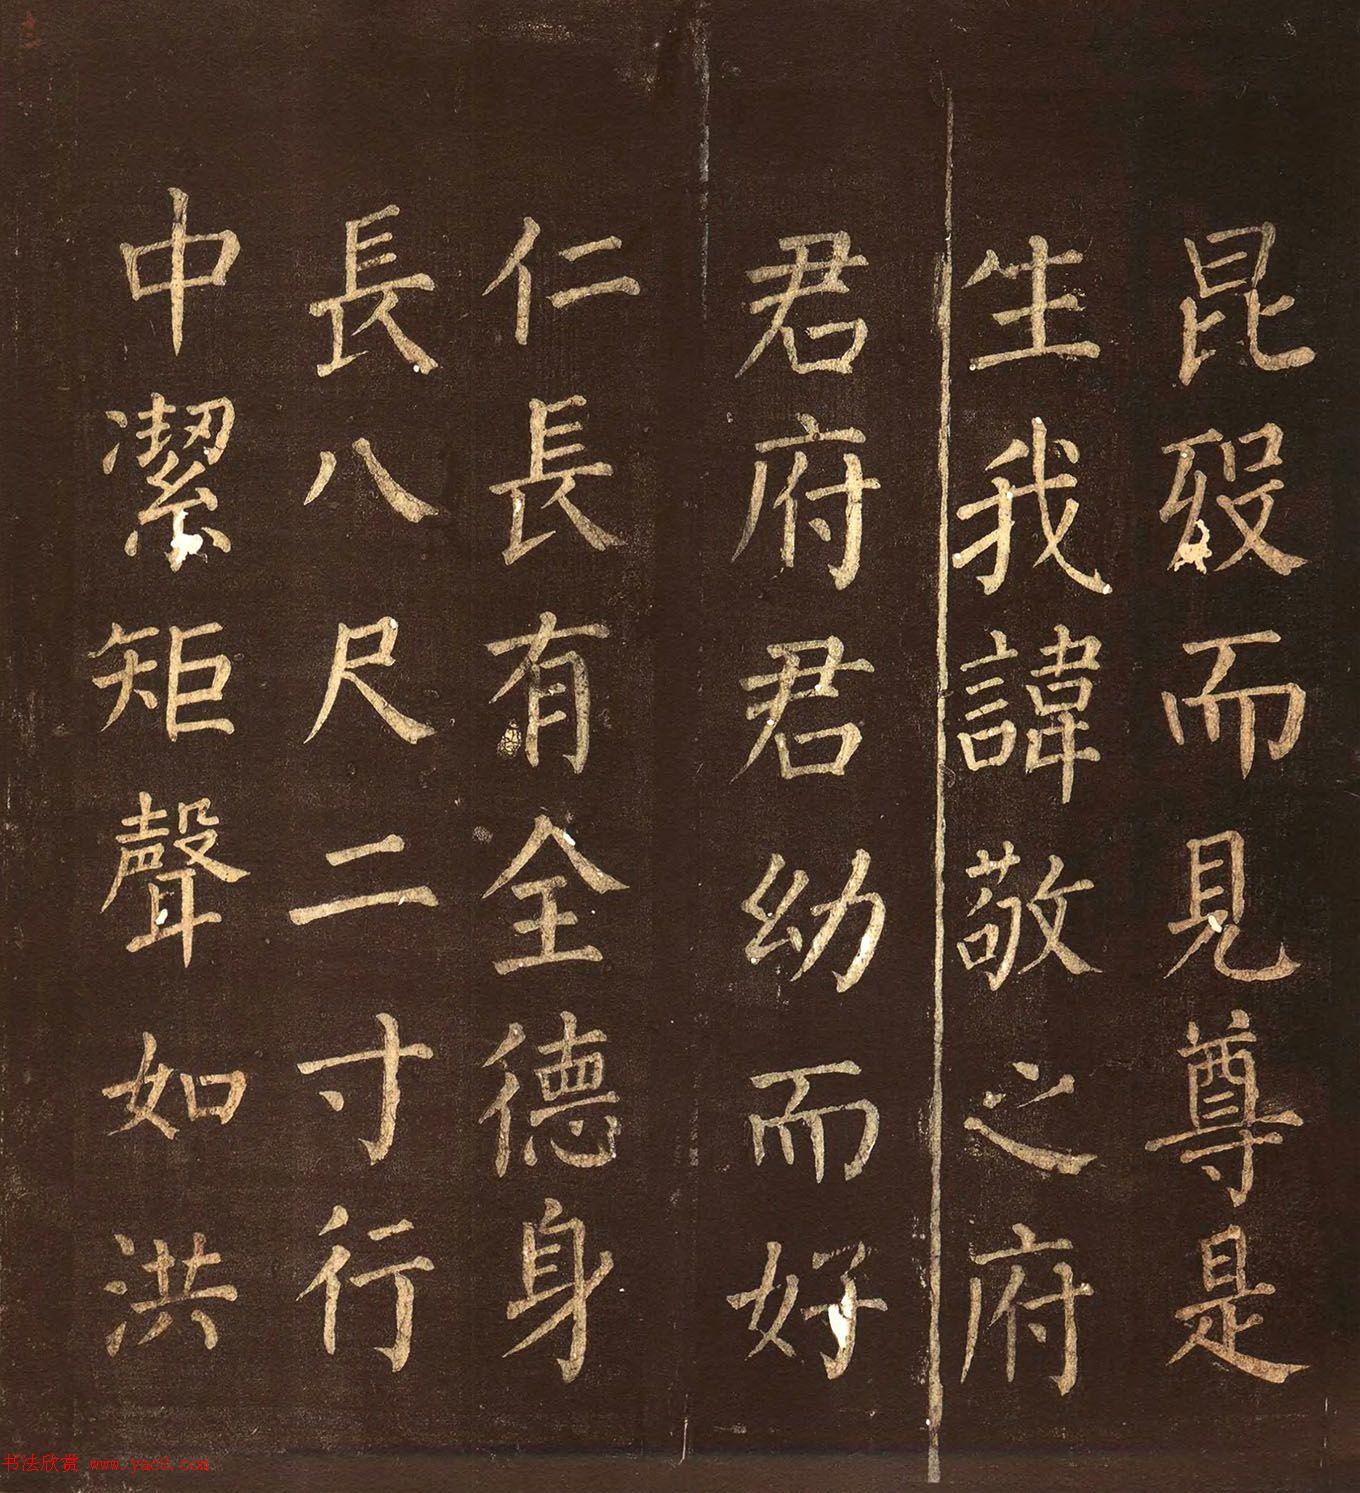 昆殁而見尊是
生我諱敬之府
君府君幼而好
仁長有全德身
長八尺二寸行
中潔矩聲如洪
书法欣赏 www.yac8.com